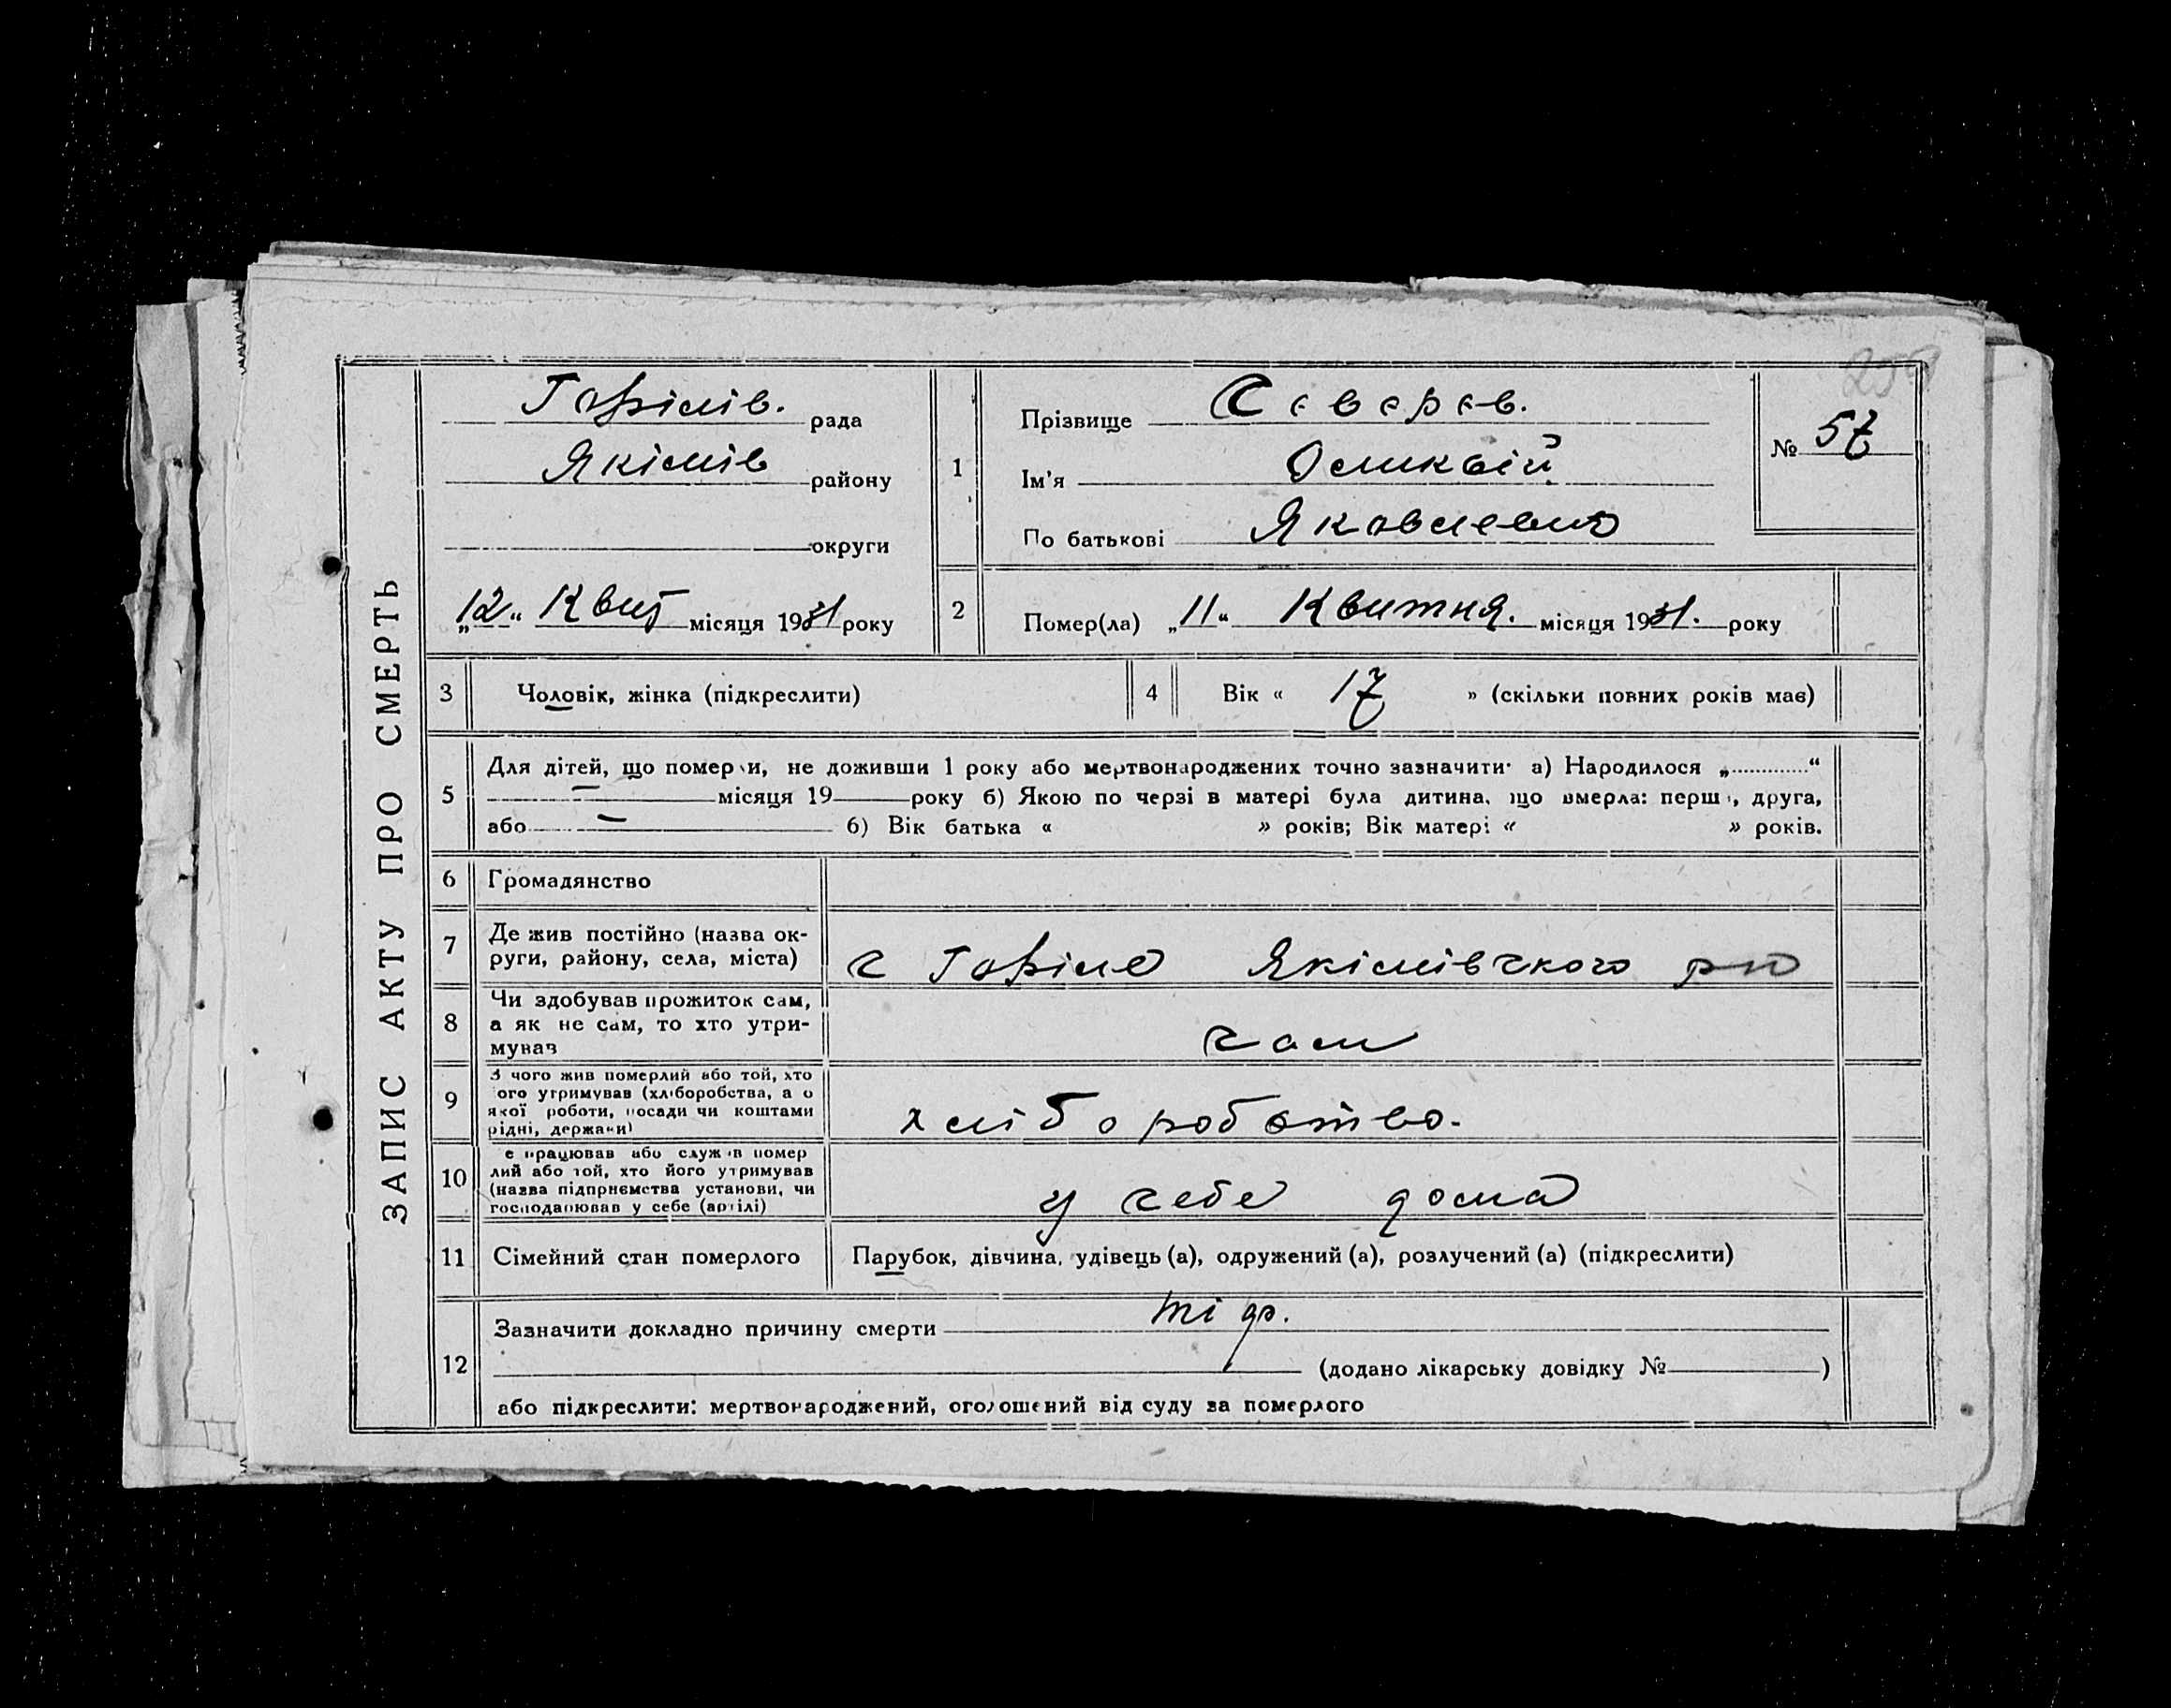 ЗАПИС АКТУ ПРО СМЕРТЬ
Гофілів. рада
Якімів району
округи
„12“ Квіт місяця 1931 року
1
Прізвище Сєвєрєв.
Ім'я
По батькові Яковлевич
№ 57
2
Помер(ла) „11“ Квитня. місяця 1931. року
3 Чоловік, жінка (підкреслити)
4 Вік « 17 » (скільки повних років має)
5
Для дітей, що померли, не доживши 1 року або мертвонароджених точно зазначити: а) Народилося „ “
— місяця 19 року б) Якою по черзі в матері була дитина, що вмерла: перша, друга,
або — 6) Вік батька « » років; Вік матері « » років.
6 Громадянство
7 Де жив постійно (назва ок-
руги, району, села, міста)
с Якімівского р-ю
8 Чи здобував прожиток сам,
а як не сам, то хто утри-
мував
сам
9 З чого жив померлий або той, хто
ого утримував (хліборобства, а о
якої роботи, посади чи коштами
рідні, держави)
хліборобство.
10 е працював або служив помер
лий або той, хто його утримував
(назва підприємства установи, чи
господарював у себе (артілі)
у себе дома
11 Сімейний стан померлого Парубок, дівчина, удівець (а), одружений (а), розлучений (а) (підкреслити)
12
Зазначити докладно причину смерти тіф.
(додано лікарську довідку № )
або підкреслити: мертвонароджений, оголошений від суду за померлого